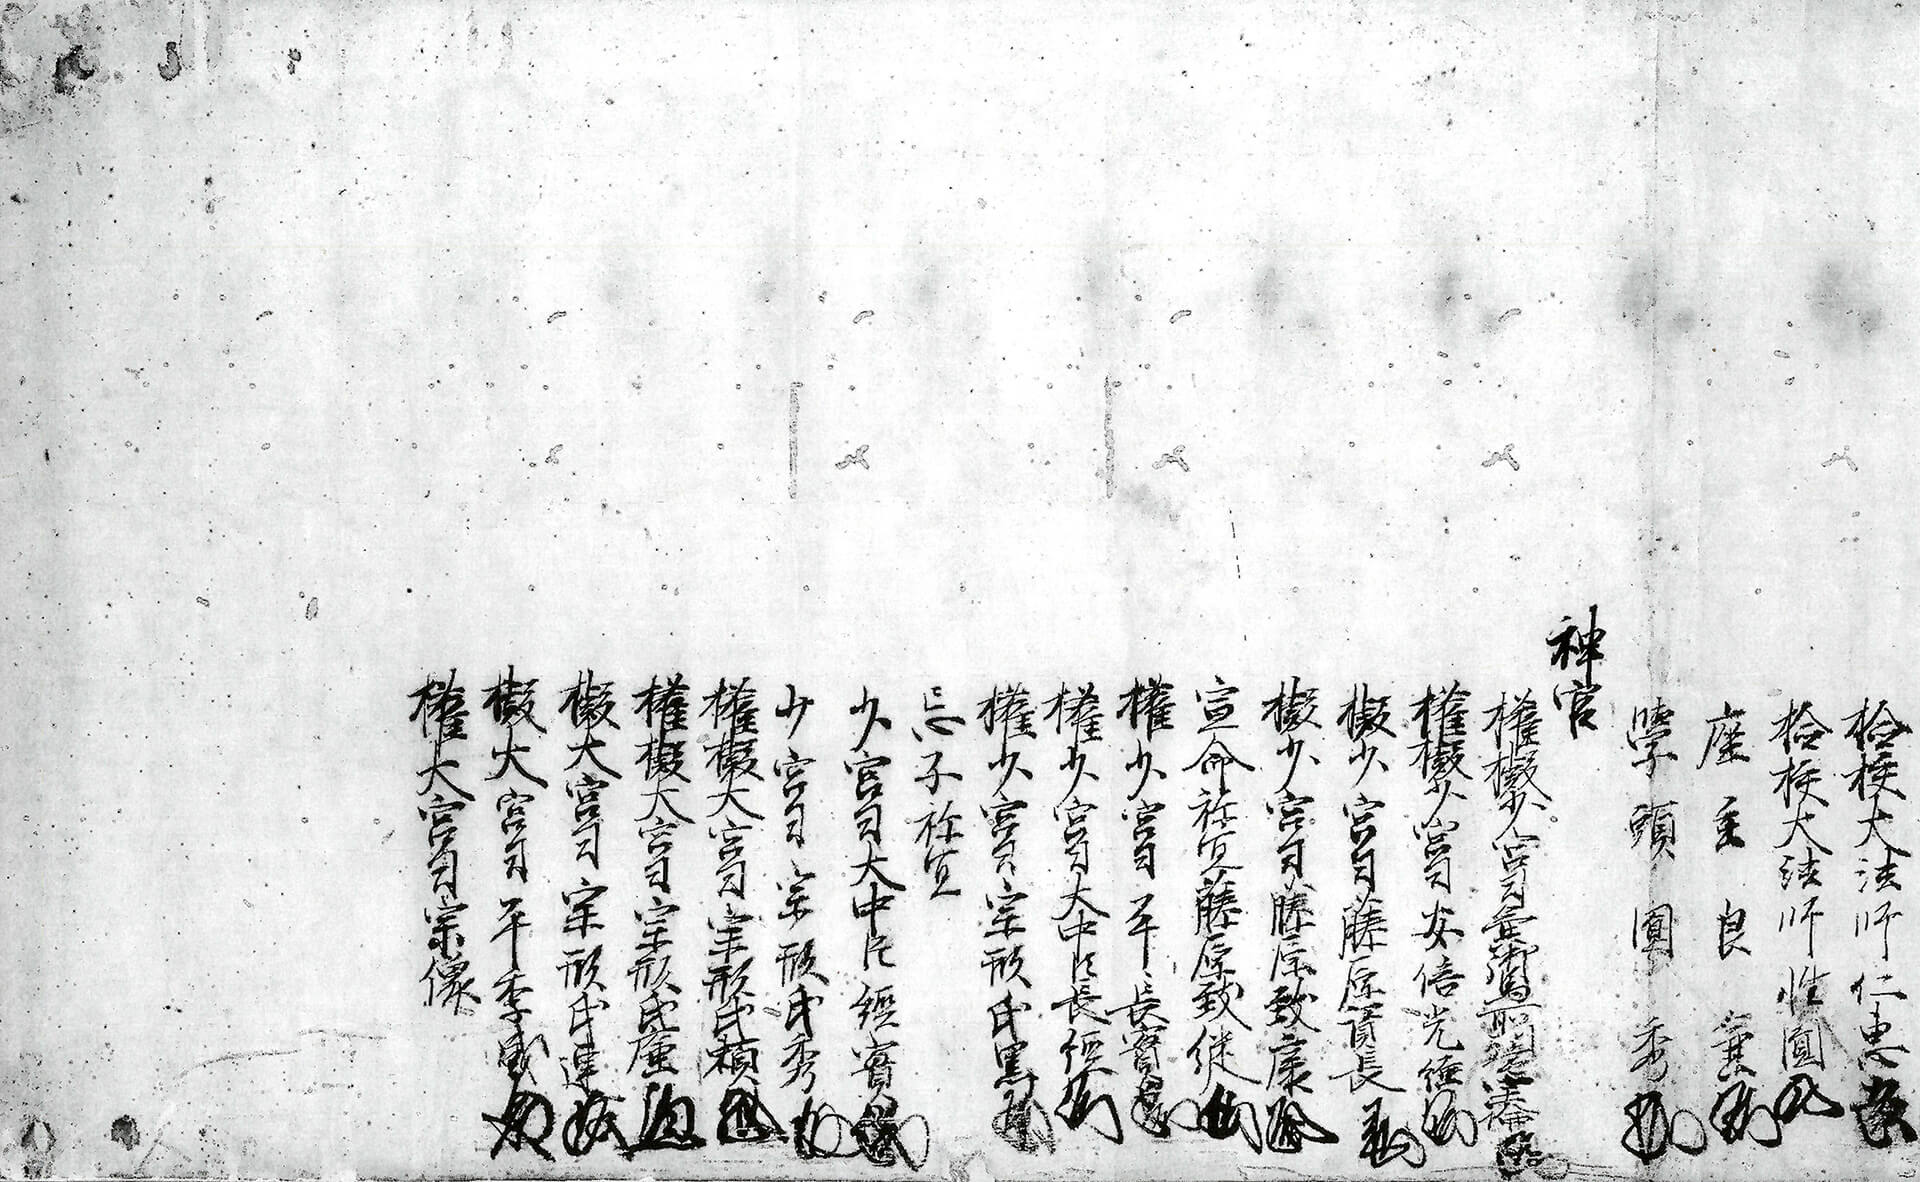 拾挍大法师仁惠
拾挍大法师性圓
座主良兼
學頭圓秀
神官
權擬少宮司
權擬少宮司安倍光
擬少宮司藤原資長
擬少宮司藤原致康
宣命祢宜藤原致継
權少宮司平長實
權少宮司大中臣長經
權少宮司宗形氏黒
忌子祢宜
少宮司大中臣經實
少宮司宗形氏秀
權擬大宮司宗形氏
權擬大宮司宗形氏
擬大宮司宗形氏
擬大宮司平季
權大宮司宗像